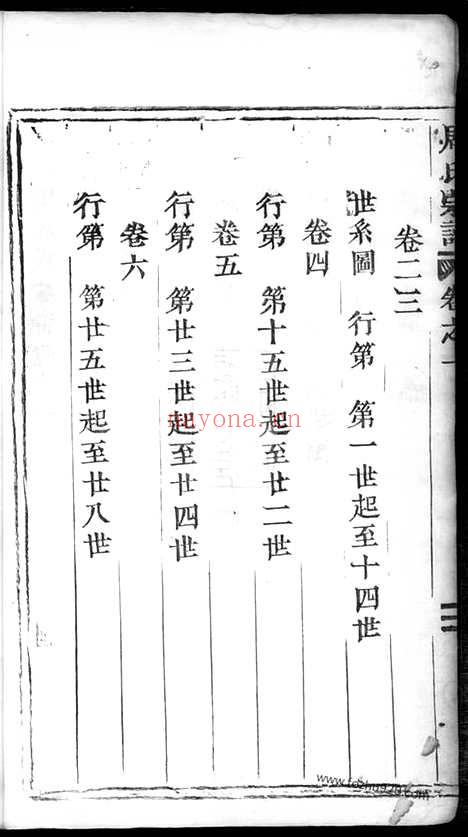 周氏宗譜 卷之一
卷二三
世系圖 行第 第一世起至十四世
卷四
行第 第十五世起至廿二世
卷五
行第 第廿三世起至廿四世
卷六
行第 第廿五世起至廿八世
nayona.cn